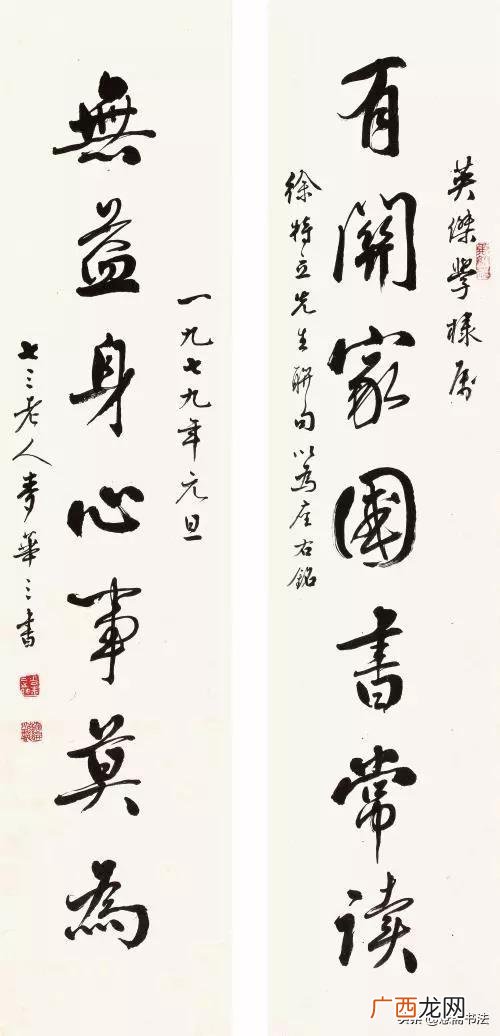 英傑學棣属
有關家國書常读
徐特立先生聯句以為座右銘
一九七九年元旦
無益身心事莫為
七三老人麥華三書
书法
广西龙网